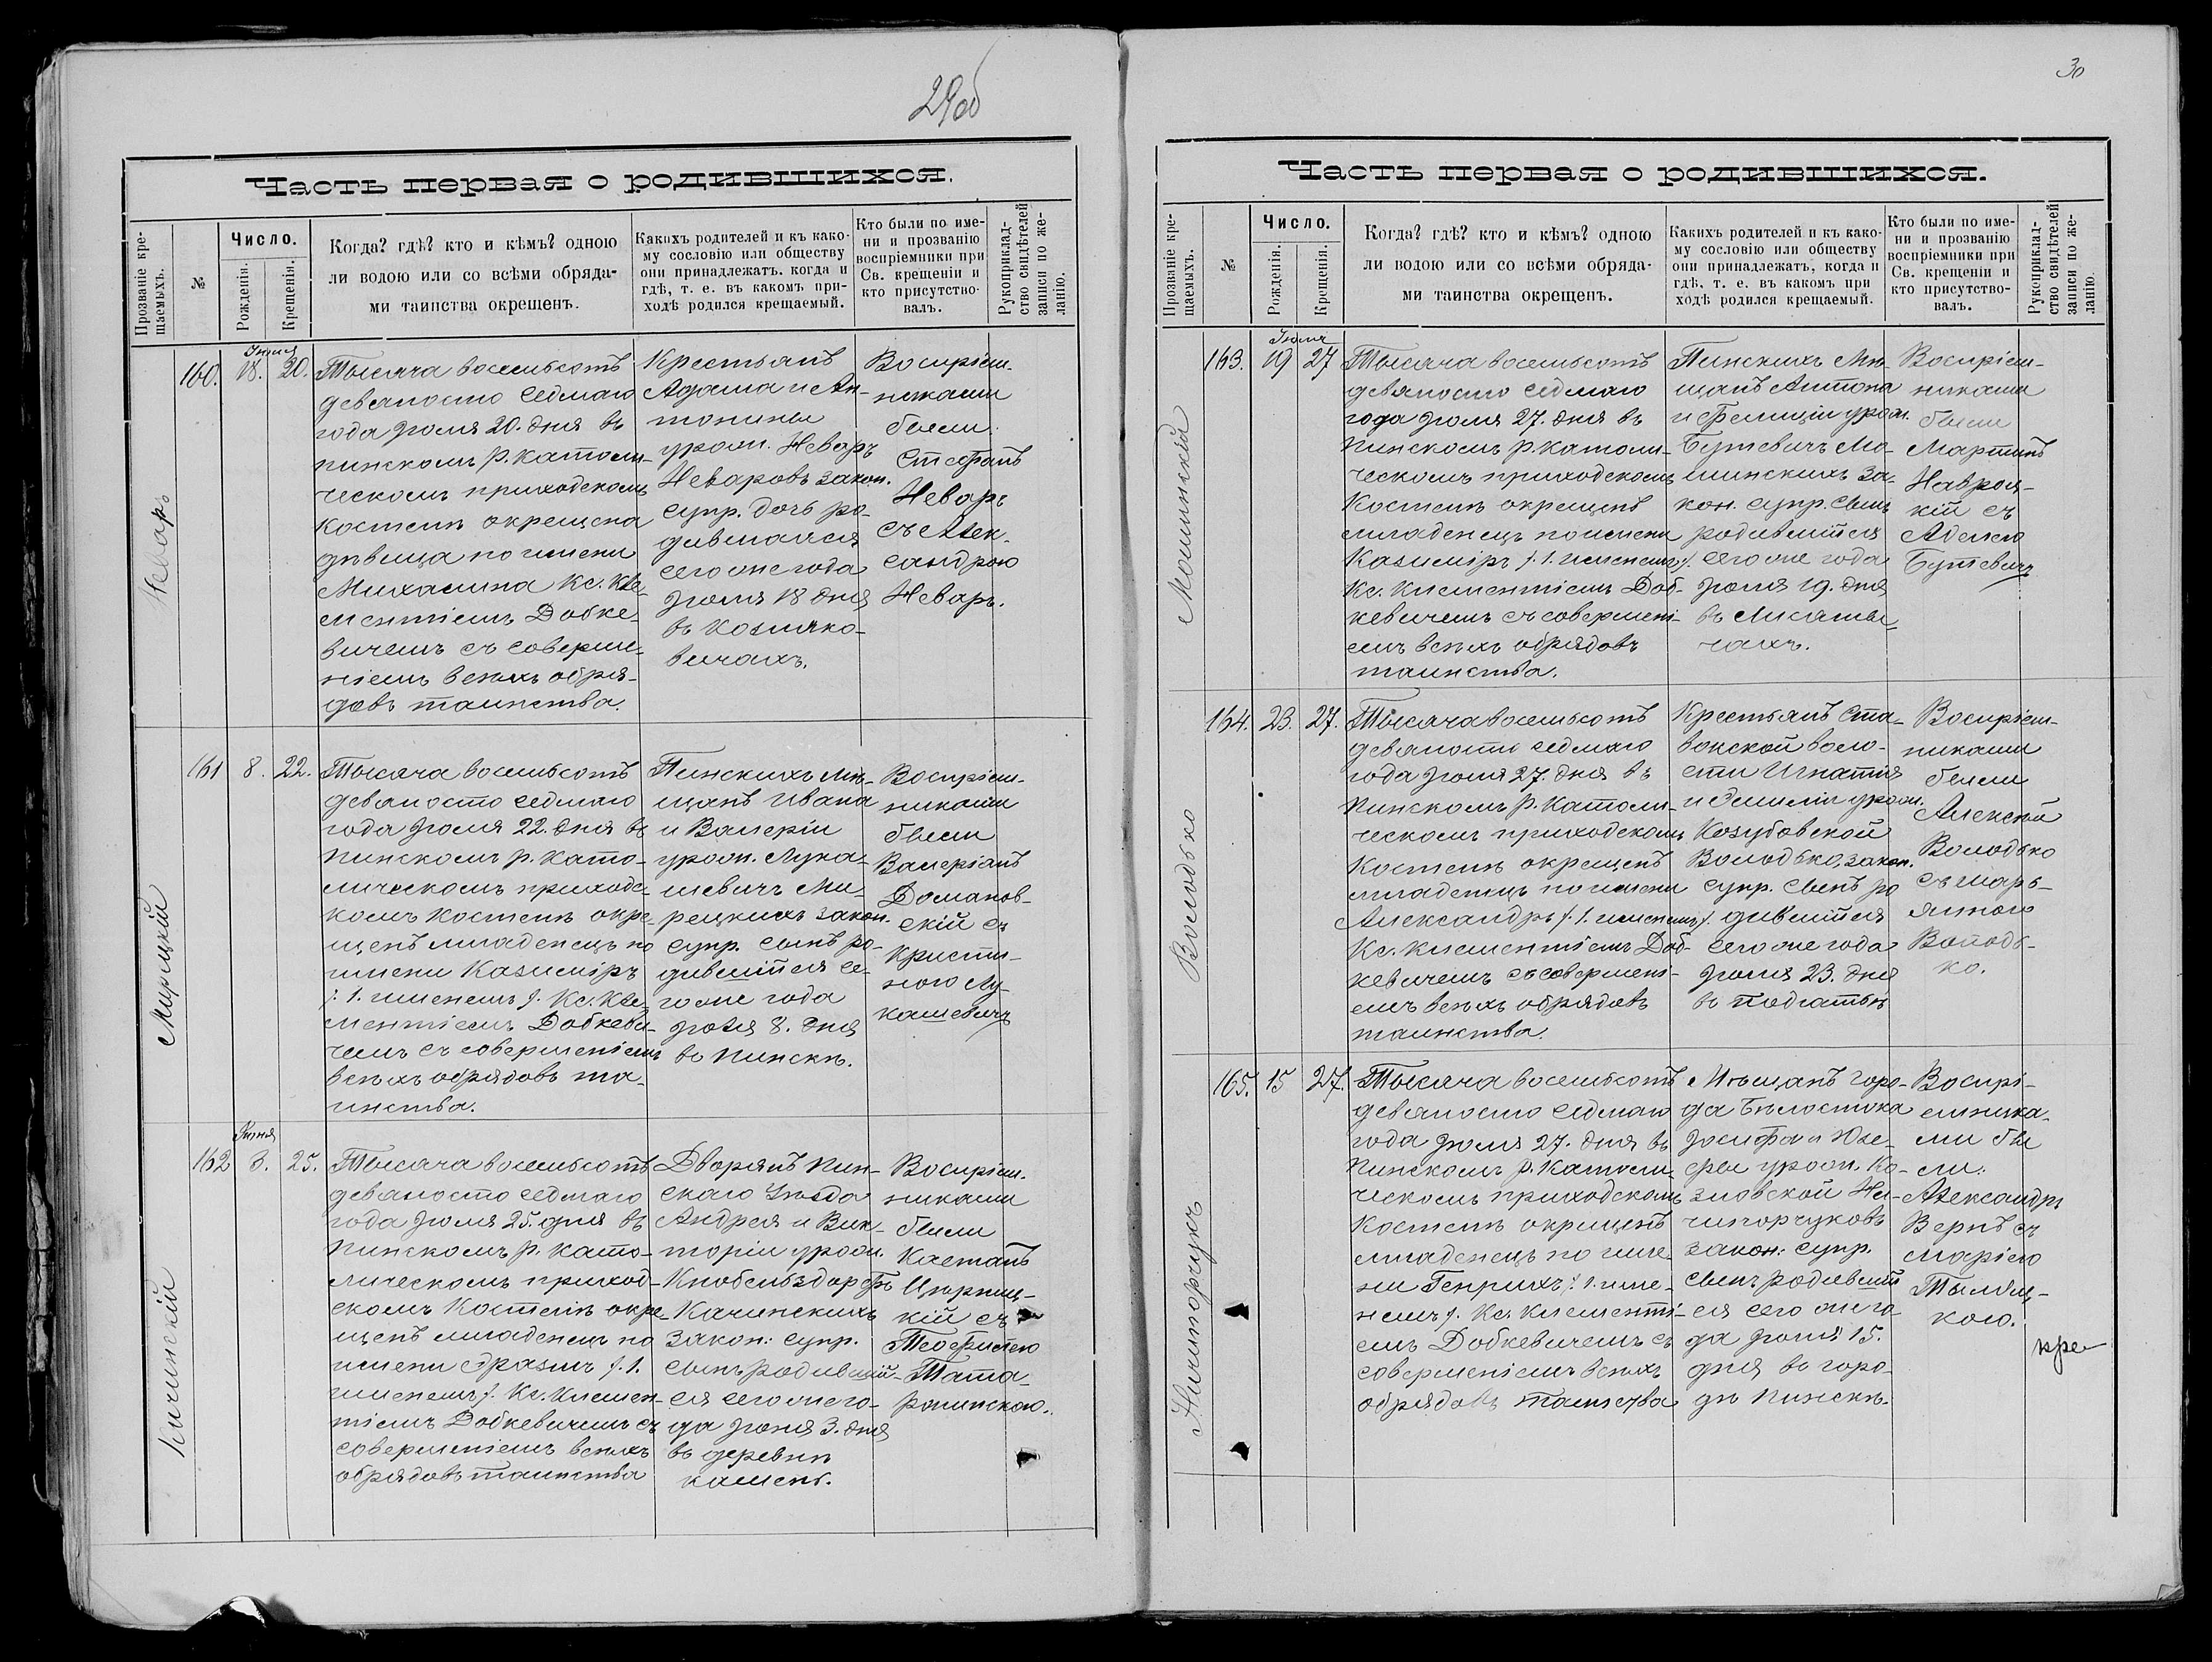 29об
Часть первая о родившихся.
Прозваніе кре-
щаемыхъ.
№
Число.
Рожденія.
Крещенія.
Когда? гдѣ? кто и кѣмъ? одною
ли водою или со всѣми обряда-
ми таинства окрещенъ.
Какихъ родителей и къ како-
му сословію или обществу
они принадлежатъ. когда и
гдѣ, т. е. въ какомъ при-
ходѣ родился крещаемый.
Кто были по име-
ни и прозванію
воспріемники при
Св. крещеніи и
кто присутство-
валъ.
Рукоприклад-
ство свидѣтелей
записи по же-
ланію.
Неваръ
160.
Іюля
18.
20.
Тысяча восемьсотъ
девяносто седмаго
года Іюля 20. дня въ
пинскомъ р. католи-
ческомъ приходскомъ
Костелѣ окрещена
дѣвица по имени
Михалина Кс. Кле-
ментіемъ Добке-
вичемъ съ соверше-
ніемъ всѣхъ обря-
довъ таинства.
Крестьянъ
Адама и Ан-
тонины
урож. Неваръ
Неваровъ закон.
супр. дочь ро-
дившаяся
сего же года
Іюля 18 дня
въ Козляко-
вичахъ.
Воспріем-
никами
были:
Стефанъ
Неваръ
съ Алек-
сандрою
Неваръ.
Мирецкій
161
8.
22.
Тысяча восемьсотъ
девяносто седмаго
года Іюля 22. дня въ
Пинскомъ р. като-
лическомъ приходс-
комъ Костелѣ окре-
щенъ младенецъ по
имени Казиміръ
/: 1. именемъ /. Кс. Кле-
ментіемъ Добкеви-
чемъ съ совершеніемъ
всѣхъ обрядовъ та-
инства.
Пинскихъ мѣ-
щанъ Ивана
и Валеріи
урож. Лука-
шевичъ Ми-
рецкихъ закон.
супр. сынъ ро-
дившійся се-
го же года
Іюля 8. дня
въ Пинскѣ.
Воспріем-
никами
были
Валеріанъ
Доманов-
скій съ
Кристи-
ною Лу-
кашевичъ
Качинскій
162
Іюня
3.
25.
Тысяча восемьсотъ
девяносто седмаго
года Іюля 25. дня въ
Пинскомъ р. като-
лическомъ приход-
скомъ Костелѣ окре-
щенъ младенецъ по
имени Эразмъ /: 1.
именемъ /. Кс. Клемен-
тіемъ Добкевичемъ съ
совершеніемъ всѣхъ
обрядовъ таинства
Дворянъ Пин-
скаго Уѣзда
Андрея и Вик-
торіи урож.
Кнобельсдорфъ
Качинскихъ
закон: супр.
сынъ родившій-
ся сего же го-
да Іюня 3. дня
въ деревнѣ
камень.
Воспріем-
никами
были
Каетанъ
съ
Теофилею
30
Часть первая о родившихся.
Прозваніе кре-
щаемыхъ.
№
Число.
Рожденія.
Крещенія.
Когда? гдѣ? кто и кѣмъ? одною
ли водою или со всѣми обряда-
ми таинства окрещенъ.
Какихъ родителей и къ како-
му сословію или обществу
они принадлежатъ, когда и
гдѣ, т. е. въ какомъ при
ходѣ родился крещаемый.
Кто были по име-
ни и прозванію
воспріемники при
Св. крещеніи и
кто присутство-
валъ.
Рукоприклад-
ство свидѣтелей
записи по же-
ланію.
163.
Іюля
19
27
Тысяча восемьсотъ
девяносто седмаго
года Іюля 27. дня въ
Пинскомъ р. католи-
ческомъ приходскомъ
Костелѣ окрещенъ
младенецъ по имени
Казиміръ /: 1. именемъ /.
Кс. Клементіемъ Доб-
кевичемъ съ совершені-
емъ всѣхъ обрядовъ
таинства.
Пинскихъ мѣ-
щанъ Антона
и Фелиціи урож.
Бутевичъ
закон. супр. сынъ
родившійся
сего же года
Іюля 19. дня
въ
Воспріем-
никами
были
Мартинъ
съ
Аделею
Бутевичъ
Володько
164.
23.
27.
Тысяча восемьсотъ
девяносто седмаго
года Іюля 27. дня въ
Пинскомъ р. католи-
ческомъ приходскомъ
Костелѣ окрещенъ
младенецъ по имени
Александръ /: 1. именемъ /.
Кс. Клементіемъ Доб-
кевичемъ съ совершені-
емъ всѣхъ обрядовъ
таинства.
Крестьянъ Ста-
вокской воло-
сти Игнатія
и Эмиліи урож.
Козубовской
Володько, закон.
супр. сынъ ро
дившійся
сего же года
Іюля 23. дня
въ Подгатьѣ
Воспріем-
никами
были
Алексѣй
Володько
съ Марь-
янною
Володь-
ко.
Ничипорчукъ
165.
15
27.
Тысяча восемьсотъ
девяносто седмаго
года Іюля 27. дня въ
Пинскомъ р. католи-
ческомъ приходскомъ
Костелѣ окрещенъ
младенецъ по име-
ни Генрихъ /: 1. име-
немъ /. Кс. Клементі-
емъ Добкевичемъ съ
совершеніемъ всѣхъ
обрядовъ таинства
Мѣщанъ горо-
да Бѣлостока
Іосифа и Юзе-
фы урож. Ко-
зловской Ни-
чипорчуковъ
закон: супр.
сынъ родившій
ся сего же го-
да Іюля 15.
дня въ горо-
дѣ Пинскѣ.
Воспрі-
емника-
ми бы
ли:
Александръ
Вернъ съ
Маріею
кою.